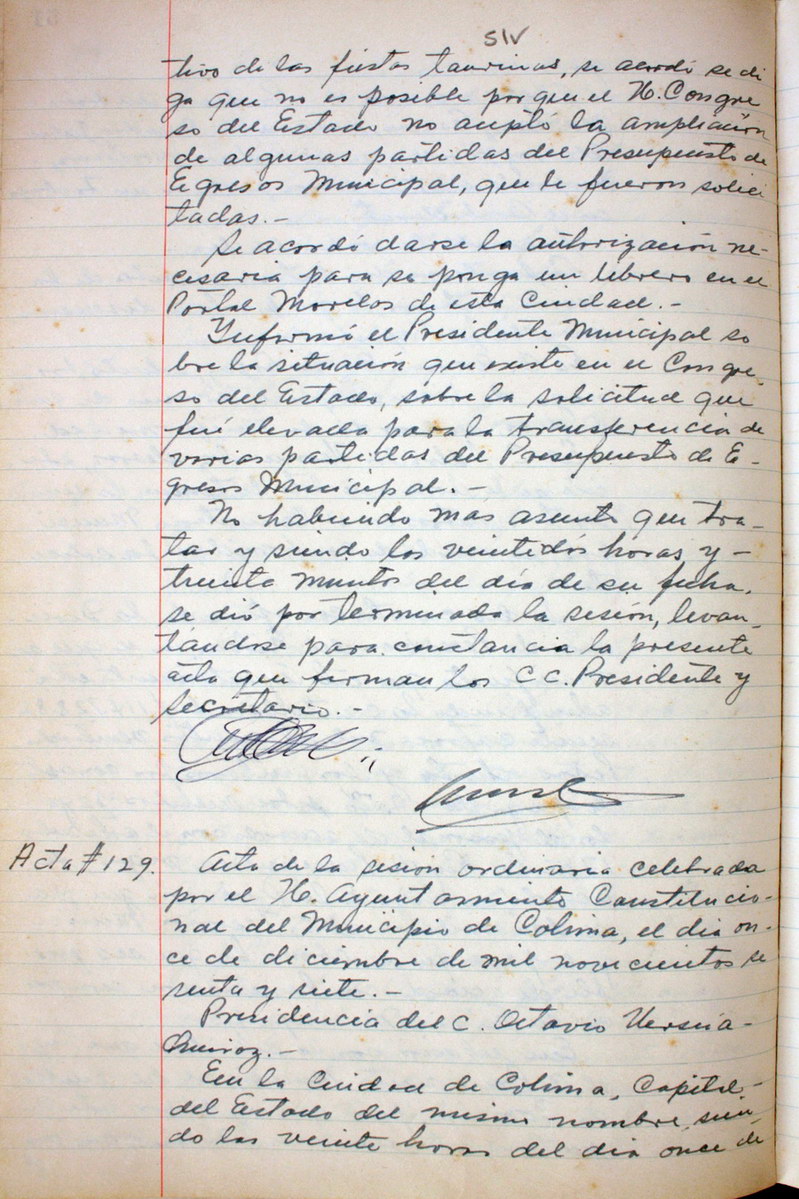 51v
tivo de las fiestas taurinas, se acordó se di
ga que no es posible por que el H. Congre
so del Estado no aceptó la ampliación
de algunas partidas del Presupuesto de
Egresos Municipal, que le fueron solici
tadas.-
Se acordó darse la autorización ne-
cesaria para se ponga un librero en el
Portal Morelos de esta Ciudad.-
Informó el Presidente Municipal so
bre la situación que existe en el Congre
so del Estado, sobre la solicitud que
fué elevada para la transferencia de
varias partidas del Presupuesto de E-
gresos Municipal.-
No habiendo mas asunto que tra-
tar y siendo las veintidós horas y -
treinta minutos del día de su fecha,
se dió por terminada la sesión, levan-
tándose para constancia la presente
acta que firman los CC. Presidente y
Secretario.-
Acta # 129.
Acta de la sesión ordinaria celebrada
por el H. Ayuntamiento Constitucio-
nal del Municipio de Colima, el día on-
ce de diciembre de mil novecientos se
senta y siete.-
Presidencia del C. Octavio Urzúa-
Quiroz.-
En la Ciudad de Colima, Capital-
del Estado del mismo nombre, sien-
do las veinte horas del día once de